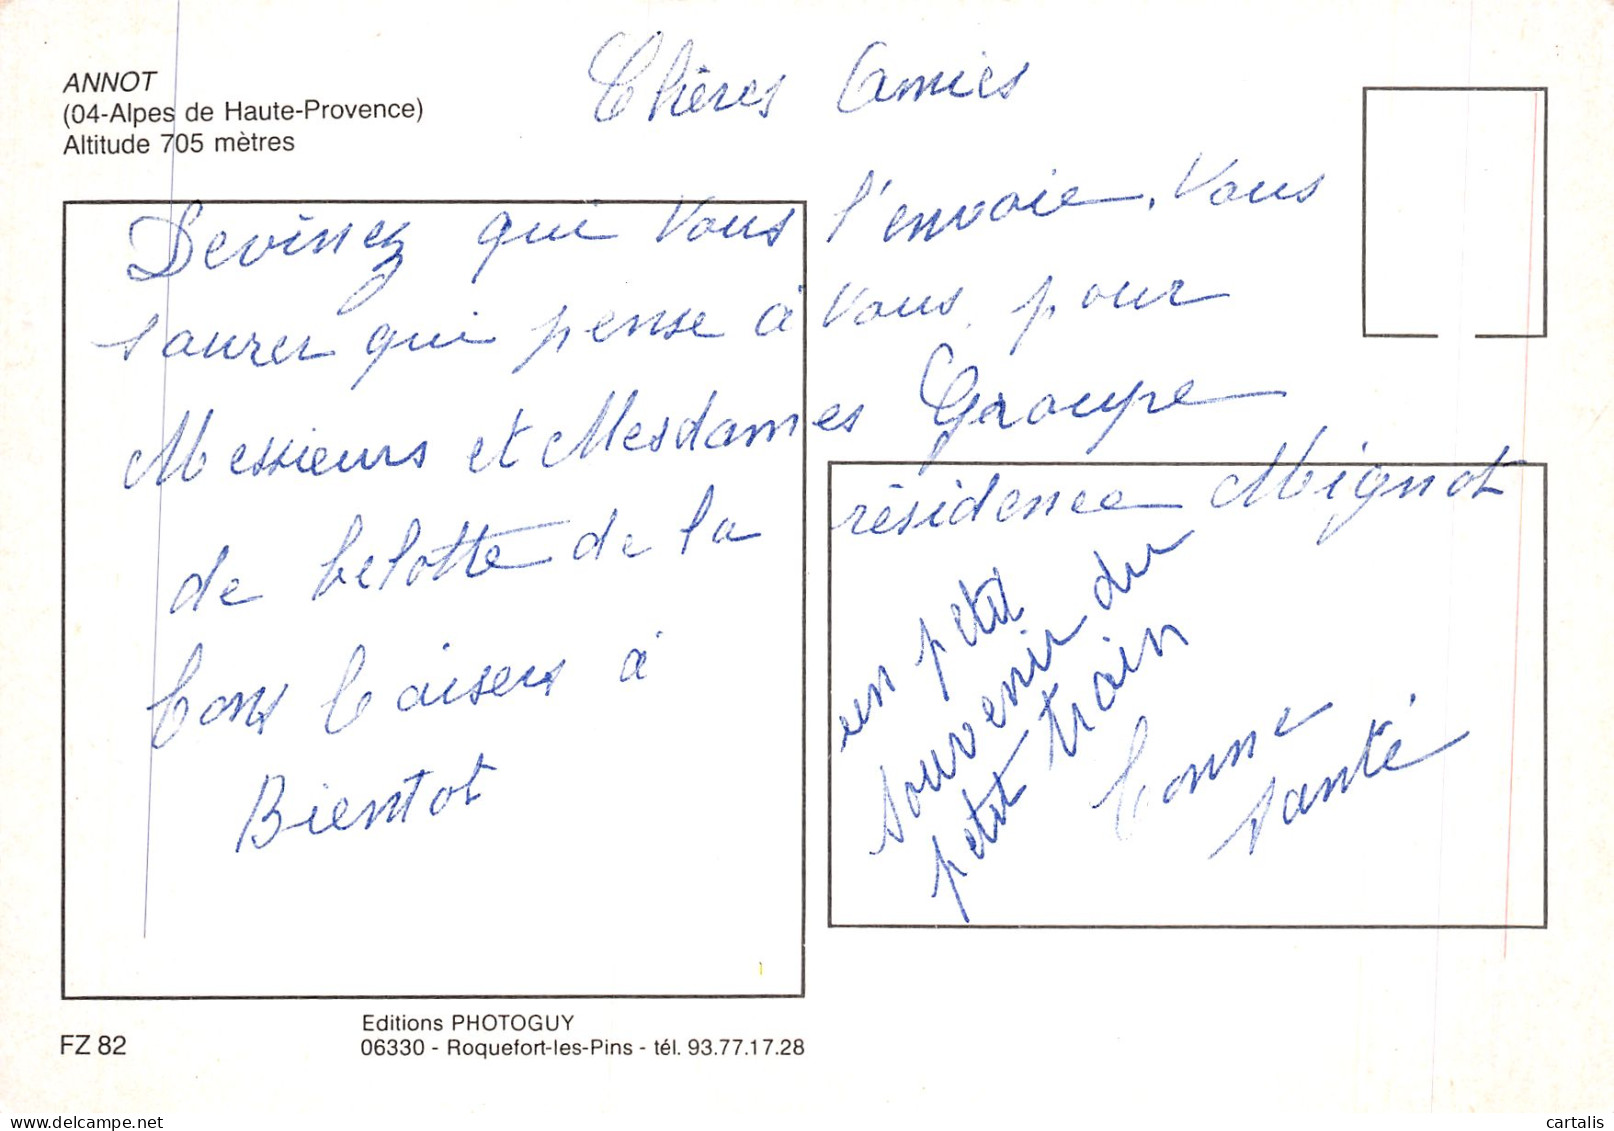 ANNOT
(04-Alpes de Haute-Provence)
Altitude 705 mètres
Chères Amies
Devinez qui Vous l'envoie. Vous
saurez qui pense à vous. pour
Messieurs et Mesdames Groupe
de belotte de la résidence Mignot
bons baisers à
Bientot
un petit
souvenir du
petit train
bonne
santé
FZ 82
Editions PHOTOGUY
06330 - Roquefort-les-Pins - tél. 93.77.17.28
cartalis